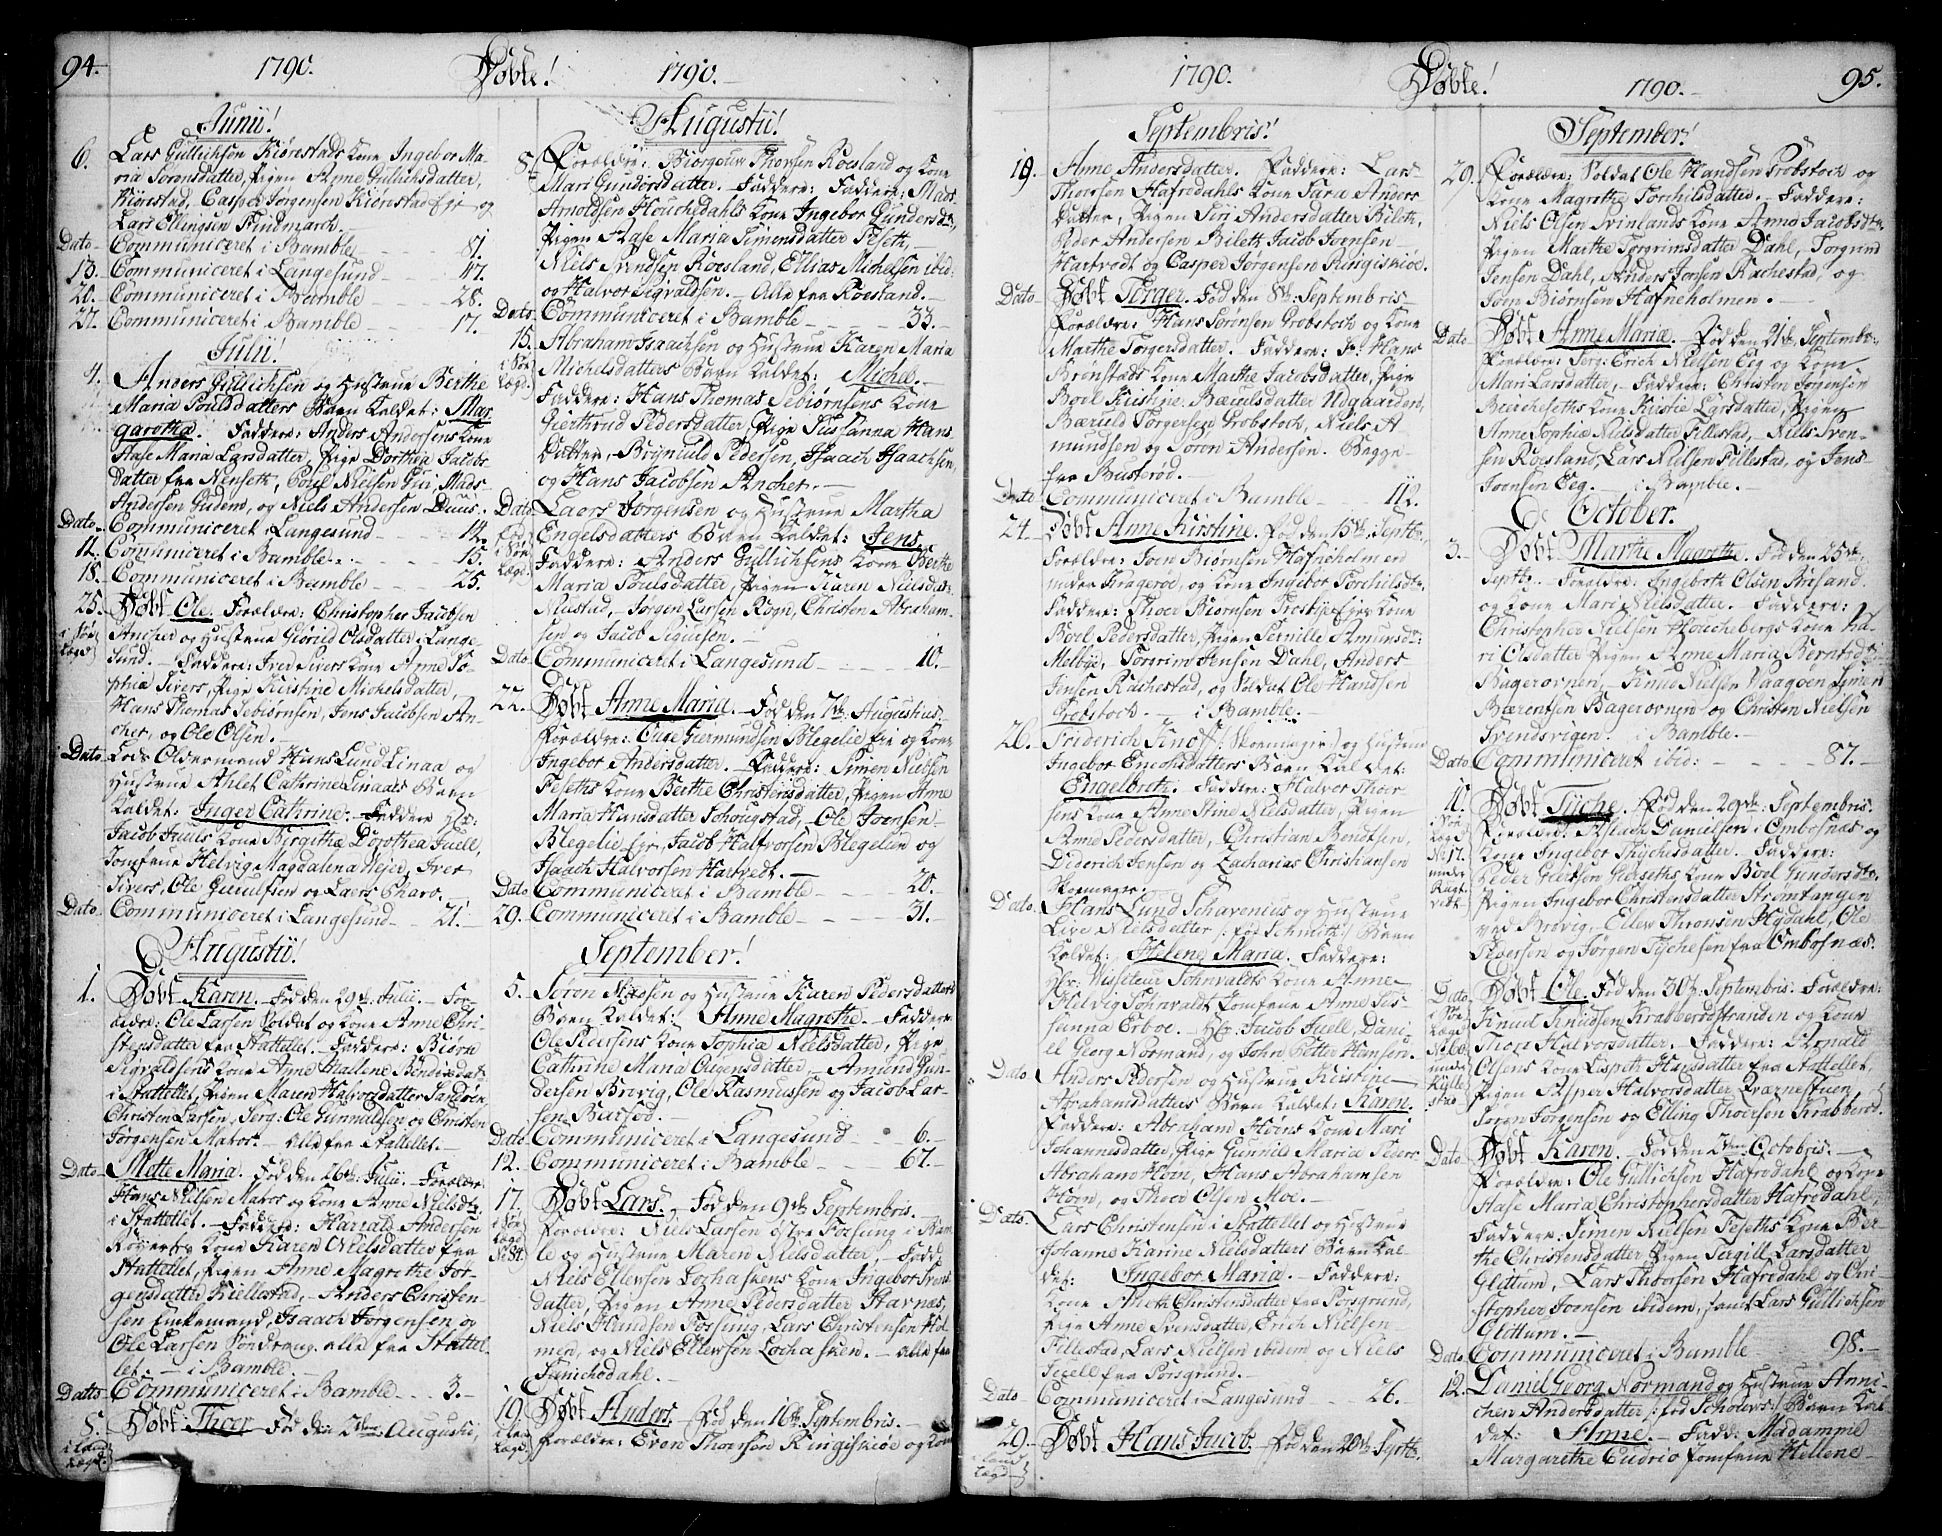 94. 1790. Døbte! 1790.
Junii!
6. Lars Gullichsen Kiørestads Kone Ingebor Ma-
ria Sørensdatter, Pigen Anne Gullichsdatter,
Kiørestad, Casper Jørgensen Kiørestad Eje og
Lars Ellingsen Findmarch.
Dato Communiceret i Bamble 81.
13. Communiceret i Langesund 47.
20. Communiceret i Bamble 28.
27. Communiceret i Bamble 17.
Julii!
4. Anders Gullichsen og Hustrue Berthe
Maria Poulsdatters Barn Kaldet: Mar
garetha. Faddere: Anders Andersens Kone
Aase Maria Larsdatter, Pige Dorthea Jacobs
datter fra Nenseth, Poul Nielsen Mads
Andersen Gudem, og Niels Andersen Duus.
Dato Communiceret i Langesund 14.
11. Communiceret i Bamble 15.
18. Communiceret i Bamble 25.
25. Døbt Ole. Forældre: Christopher Jacobsen
Ancher og Hustrue Giørild Olsdatter i Lange-
sund. Faddere: Fred: Sivers Kone Anne So-
phia Sivers, Pige Kirstine Michelsdatter,
Hans Thomas Sebiørnsen, Jens Jacobsen An-
cher, og Ole Olsen.
Dato Lods Oldermand Hans Lund Linaa og
Hustrue Ahlet Cathrine Linaaes Barn
Kaldet: Inger Cathrine. Faddere Hr:
Jacob Juells Kone Birgithe Dorothea Juell,
Jomfrue Helvig Magdalena Vejer, Iver
Sivers, Ole Gunulfsen og Laers Charo.
Dato Communiceret i Langesund 21.
Augustii!
1. Døbt Karen. Fød den 29de Julii. For-
ældre: Ole Larsen Soldat og Kone Anne Chri
stensdatter fra Stattellet. Faddere: Biørn
Sigvaldsens Kone Anne Mallene Bendixdat
i Stattellet, Pigen Maren Halvorsdatter Sandøen,
Christen Larsen, Serg: Ole Gunnildsen og Christen
Jørgensen Mator. Alle fra Stattellet.
Dato Mette Maria. Fød den 26de Julii. Forældre:
Hans Nielsen Mator og Kone Anne Nielsdt:
i Stattellet. Faddere: Harald Andersen
Røyerbrg Kone Karen Nielsdatter fra
Stattellet, Pigen Anne Magrethe Jør-
gensdatter Kiellestad, Anders Christen-
sen Enkemand, Isaach Jørgensen, og
Ole Larsen alle fra Stattel-
let. i Bamble.
Datto Communiceret i Bamble 3.
8. Døbt: Thoer Fød den: 2den Augusti,
i land
lægd:
Augustii!
8. Forældre: Biørgouw Thorsen Roesland og Kone
Mari Gundersdatter. Faddere: Faddere: Mads
Arnoldsen Houchedahls Kone Ingebor Gundersdt:,
Pigen Aase Maria Simensdatter Feseth,
Niels Svendsen Roesland, Ellias Michelsen ibid:
og Halvor Sigvaldsen. Alle fra Roesland.
Dato Communiceret i Bamble 33.
15. Abraham Isaachsen og Hustrue Karen Maria
i Søe Michelsdatters Barn Kaldet: Michel.
Lægd: Faddere: Hans Thomas Sebiørnsens Kone
Gierthrud Pedersdatter, Pige Sussanna Hans
datter, Brynuld Pedersen, Isaach Isaachsen,
og Hans Jacobsen Ancher.
Dato Laers Jørgensen og Hustrue Martha
Engelsdatters Barn Kaldet: Jens.
i Søe Faddere: Anders Gullichsens Kone Berthe
Lægd: Maria Poulsdatter, Pigen Karen Nielsdat:
Nustad, Jørgen Larsen Rogn, Christen Abraham-
sen og Jacob Siversen.
Dato Communiceret i Langesund 10.
22. Døbt Anne Maria. Fød den 7de Augustius.
Forældre: Ouve Giermundsen Blegelie Eie og Kone
Ingebor Andersdatter. Faddere: Simen Nielsen
Feseths Kone Berthe Christensdatter, Pigen Anne
Maria Hansdatter Schougstad, Ole Joensen
Blegelie Eje, Jacob Halvorsen Blegelien og
Isaach Halvorsen Hartvedt.
Dato Communiceret i Bamble 20.
29. Communiceret i Bamble 31.
September!
5. Søren Nilssen og Hustrue Karen Pedersdatters
Barn Kaldet: Anne Magrethe. Faddere
Ole Reersens Kone Sophia Nielsdatter, Pige
Cathrine Maria Clugensdatter, Amund Gun-
dersen Brevig, Ole Rasmussen og Jacob Lar-
sen Barfod.
Dato Communiceret i Langesund 6.
12. Communiceret i Bamble 67.
17. Døbt Lars. Fød den 9de Septembris.
i Søe Forældre: Niels Larsen østre Fossing i Bam-
lægd le og Hustrue Maren Nielsdatter. Fadd:
No 84. Niels Ellevsen Lochaskens Kone Ingebor Svens
datter, Pigen Anne Pedersdatter Stavnæs,
Niels Handsen Fossing, Lars Christensen Hol-
men, og Niels Ellevsen Lochasken. alle fra
Funichodahl.
19. Døbt Anders. Fød den 16de Septembris.
i land Forældre: Even Thoersen Ringiskioe og Kone
lægd:
1790. Døbte! 1790. 95.
Septembris!
19. Anne Andersdatter. Faddere: Lars
Thorsen Hafredahls Kone Sara Anders
datter, Pigen Siri Andersdatter Bilet,
Peder Andersen Bilet, Jacob Joensen
Hartvedt og Casper Jørgensen Ringiskioe.
Dato Døbt Torger. Fød den 8de Septembris
Forældre: Hans Sørensen Grobstoch og Kone
Marthe Torgersdatter. Faddere: Hans
Brønstads Kone Marthe Jacobsdatter, Pige
Boel Kistine Bærulsdatter Udgaarden,
Bæruld Torgersen Grobstoch, Niels A-
mundsen og Søren Andersen. Begge
fra Busterød.
Dato Communiceret i Bamble 112.
24. Døbt Anne Kirstine. Fød den 15de Septbr.
Forældre: Joen Biørnsen Hafneholmen
under Kragerøe, og Kone Ingebor Torchilsdtr.
Faddere: Thoer Biørnsen Trosbye Eies Kone
Boel Pedersdatter, Pigen Pernille Amunsdr:
Melbye, Torgrim Jensen Dahl, Anders
Jensen Rachestad, og Soldat Ole Handsen
Grobstoch. i Bamble.
26. Friderich Knoff (: Skoemager:) og Hustrue
Ingebor Enochsdatters Barn Kaldet:
Engelbreth. Faddere: Halvor Thoer
sens Kone Anne Stine Nielsdatter, Pigen
Anne Pedersdatter, Christian Bendtsen,
Diderich Jensen og Zacharias Christiansen
Skoemager.
Dato. Hans Lund Schavenius og Hustrue
Live Nielsdatter /: fød Schmith:/ Barn
Kaldet: Helene Maria. Faddere:
Hr: Visiteur Sohnvaldts Kone Anne
Helvig Sohnvaldt, Jomfrue Anne Sus-
sanna Erboe. Hr: Jacob Juell, Dani-
el Georg Normand, og John Petter Hansen.
Dato Anders Pedersen og Hustrue Kirstine
Abrahamsdatters Barn Kaldet: Karen.
Faddere: Abraham Hoens Kone Mari
Johannesdatter, Pige Gunnild Maria Peders
Abraham Hoen, Hans Abrahamsen
Hoen, og Thoer Olsen Moe.
Dato. Lars Christensen i Stattellet og Hustrue
Johanne Karine Nielsdatters Barn Kal-
det: Ingebor Maria. Faddere:
Kone Aneth Christensdatter fra Porsgrund,
Pige Anne Svensdatter, Erich Nielsen
Fillestad, Lars Nielsen ibidem og Niels
Texell fra Porsgrund.
Dato Communiceret i Langesund 26.
29. Døbt Hans Jacob. Fød den 20de Septbr.
i land
lægd
September!
29. Forældre: Soldat Ole Handsen Grobstoch og
Kone Magrethe Torchilsdatter. Faddere:
Niels Olsen Svinlands Kone Anne Jacobsdtr.
Pigen Marthe Torgrimsdatter Dahl, Torgrim
Jensen Dahl, Anders Jensen Rachestad, og
Joen Biørnsen Hafneholmen.
Dato Døbt Anne Maria. Fød den 21de Septembr.
Forældre: Serg: Erich Nielsen Eig og Kone
Mari Larsdatter. Faddere: Christen Jørgensen
Biercheseths Kone Kirstie Larsdatter, Pigen
Anne Sophia Nielsdatter Fillestad, Niels Sven-
sen Roesland, Lars Nielsen Fillestad, og Jens
Joensen Eeg. i Bamble.
October.
3. Døbt Marthe Magrethe. Fød den 25de
Septbr. Forældre: Ingebreth Olsen Røsland
og Kone Mari Nielsdatter. Faddere:
Christopher Nielsen Houchebergs Kone Ka-
ri Olsdatter, Pigen Anne Maria Berntsd:
Bagerovnen, Knud Nielsen Vaagøen, Simen
Bærentsen Bagerovnen og Christen Nielsen
Svendsvigen. i Bamble.
Dato Communiceret ibid: 87.
11. Døbt Tyche. Fød den 29de Septembris.
i Søe Forældre: Aslach Danielsen i Ombosnæs og
Lægd Kone Ingebor Thychesdatter. Faddere:
No 17. Peder Giertsen Gierseths Kone Boel Gundersdtr.
under Pigen Ingebor Christensdatter Strømtangen
ved Brevig, Ellev Thronsen Hydahl, Ole
Pedersen og Jørgen Tychesen fra Ombosnæs.
Dato Døbt Ole. Fød den 30te Septembris. Forældre:
i Søe Knud Knudsen Krabberødstranden og Kone
Lægd Thore Halvorsdatter. Faddere: Arnold
Olsens Kone Lispeth Hansdatter fra Stattellet,
under Pigen Asper Halvorsdatter Qværnestuen,
Søren Jørgensen og Elling Thoersen Krabberød.
Dato Døbt Karen. Fød den 2den Octobris.
Forældre: Ole Gullichsen Hafredahl og Kone
Aase Maria Christophersdatter Hafredahl.
Faddere: Simen Nielsen Feseths Kone Ber-
the Christensdatter, Pigen Sergill Larsdatter
Glittum, Lars Thorsen Hafredahl og Chri-
stopher Joensen ibidem, samt Lars Gullichsen
Glittum.
Dato Communiceret i Bamble 98.
12. Daniel Georg Normand og Hustrue Anni-
chen Andersdatter /: fød Scholevs:/ Barn Kal-
det: Anne. Fadd: Madamme
Margarethe Cudrio Jomfrue Hellene